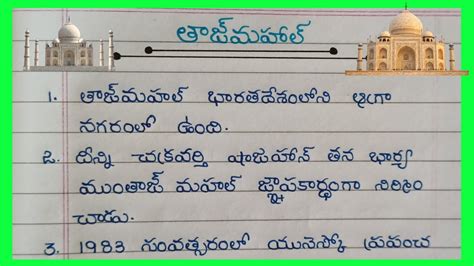 తాజ్‌మహాల్
1. తాజ్‌మహల్ భారతదేశంలోని ఆగ్రా
నగరంలో ఉంది.
2. దీన్ని చక్రవర్తి షాజహాన్ తన భార్య
ముంతాజ్ మహల్ జ్ఞాపకార్థంగా నిర్మిం
చాడు.
3. 1983 సంవత్సరంలో యునెస్కో ప్రపంచ